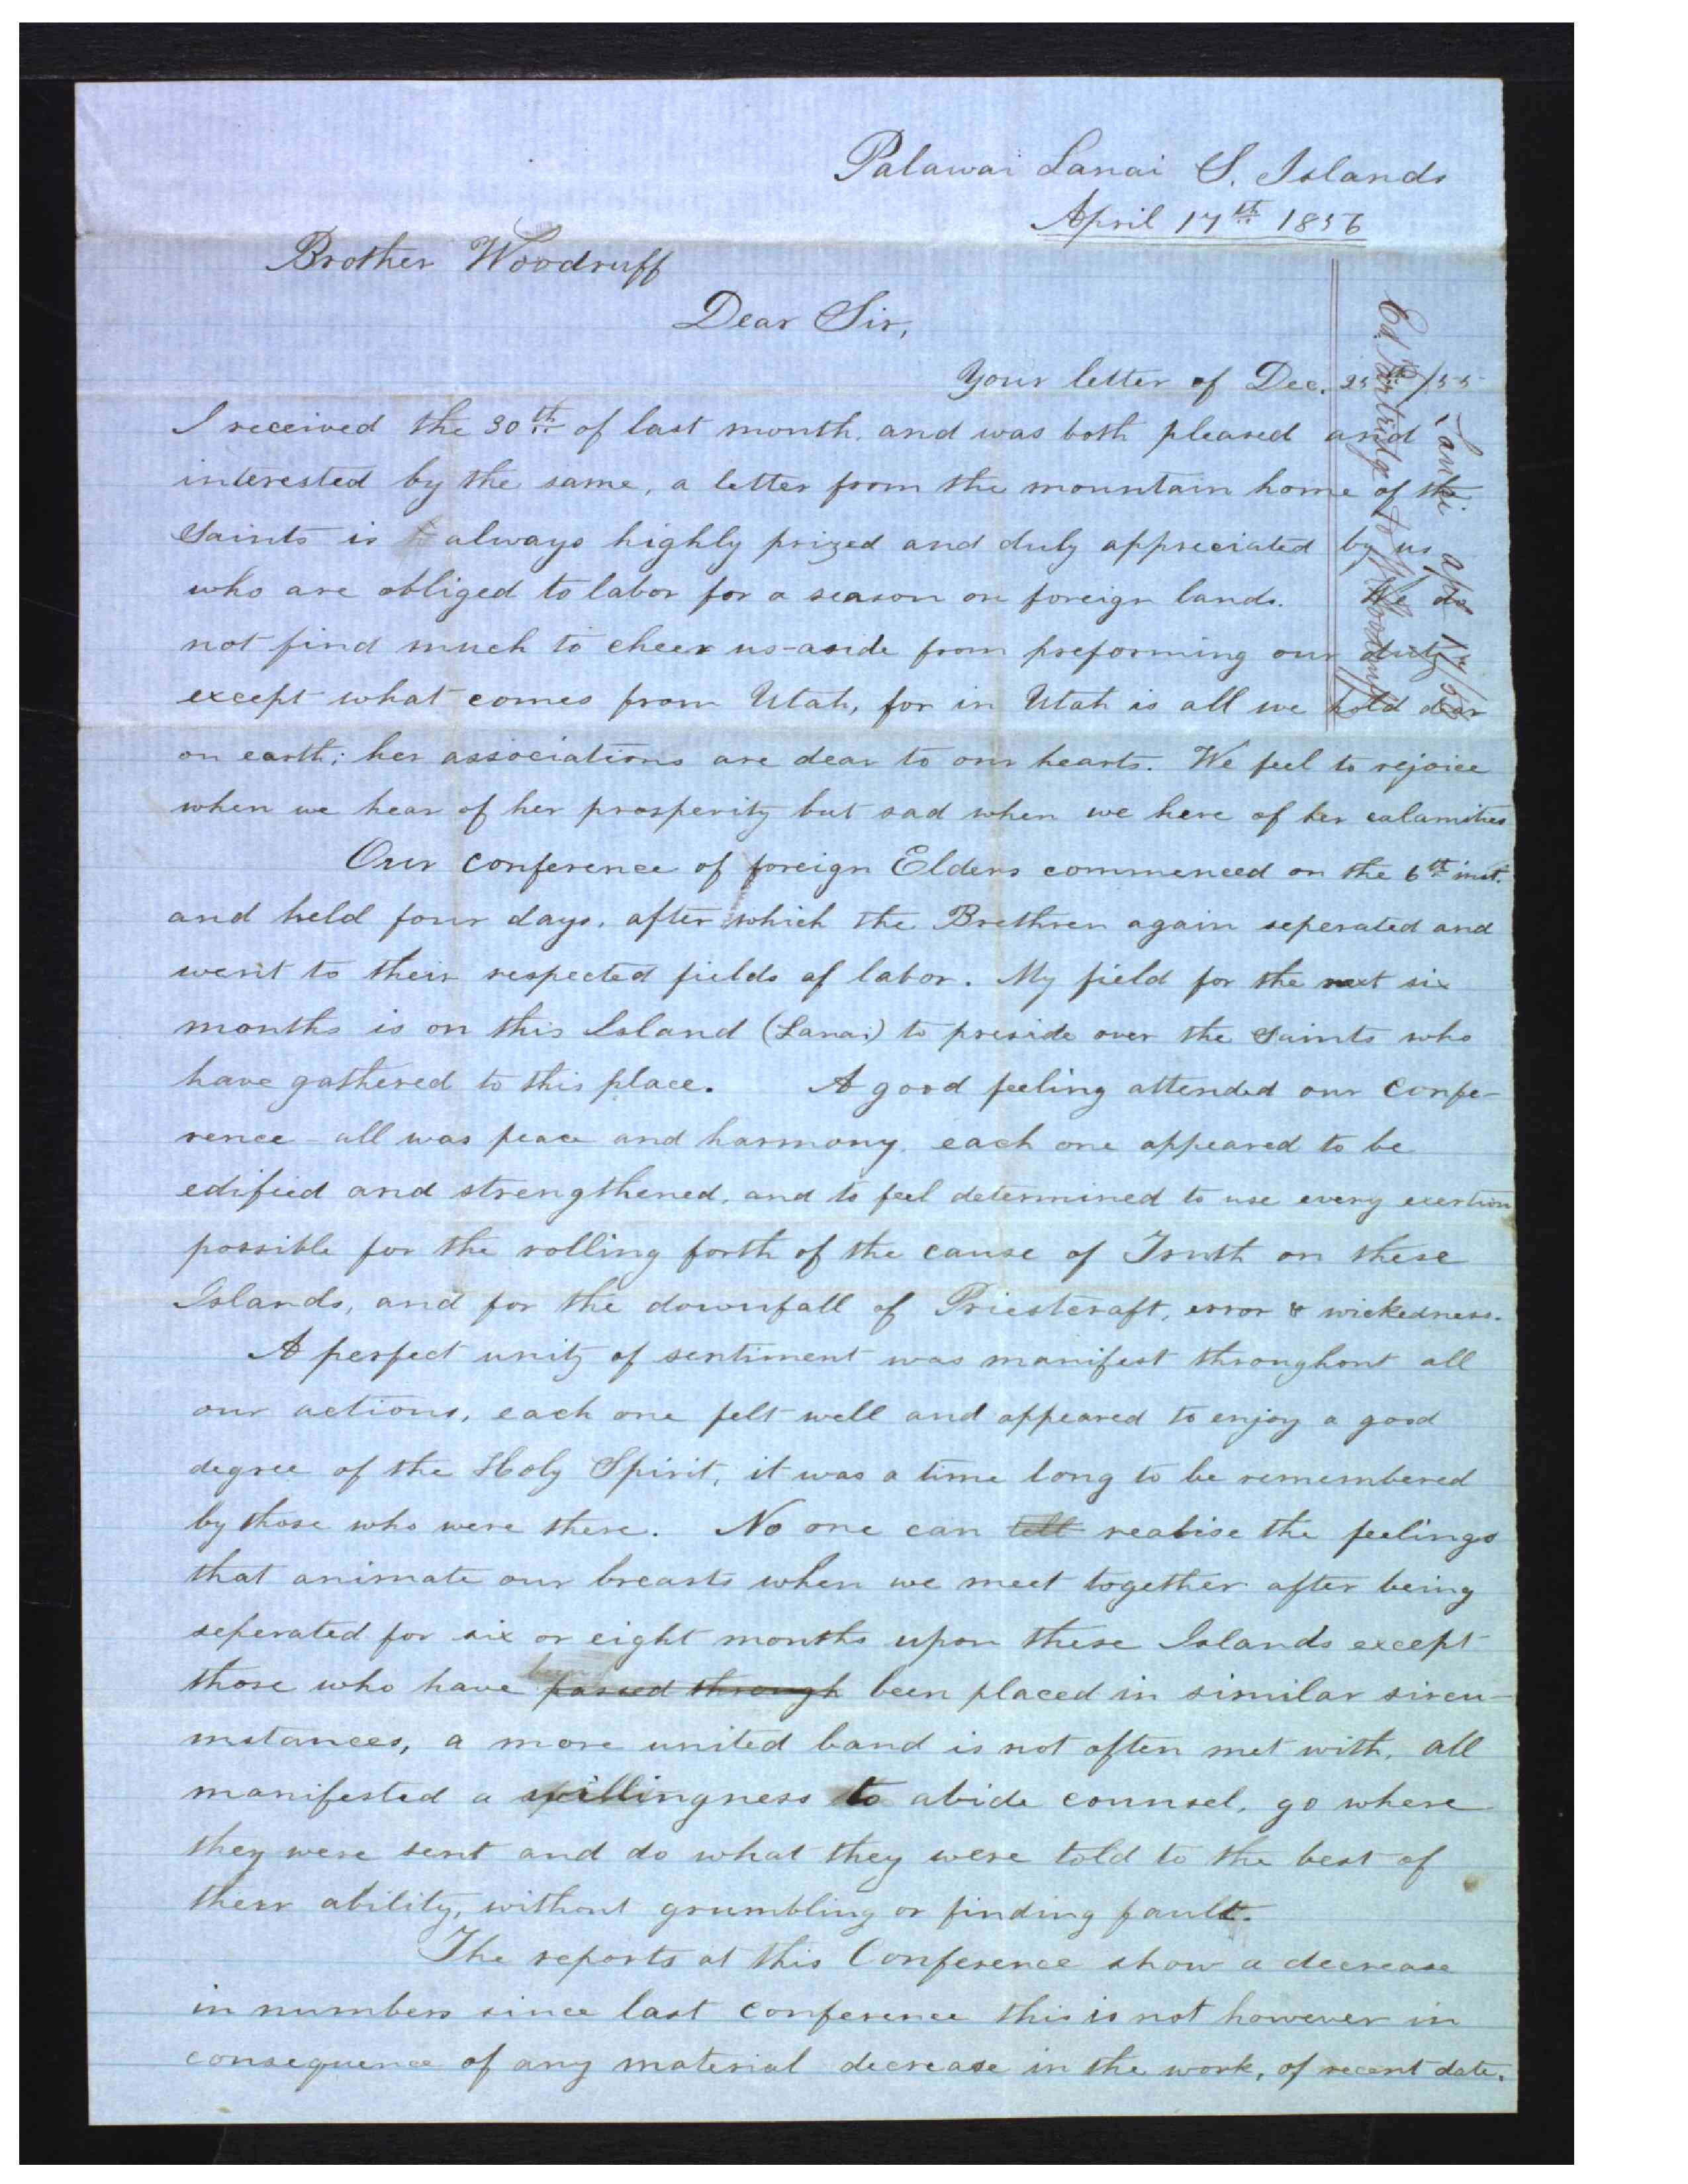 Palawai Lanai S. Islands
April 17th 1856
Brother Woodruff
Dear Sir,
Your letter of Dec. 25th /55
I received the 30th of last month, and was both pleased and
interested by the same, a letter from the mountain home of the
Saints is always highly prized and duly appreciated by us
who are obliged to labor for a season on foreign lands. We do
not find much to cheer us-aside from preforming our duty
except what comes from Utah, for in Utah is all we hold dear
on earth; her associations are dear to our hearts. We feel to rejoice
when we hear of her prosperity but sad when we here of her calamities
Our conference of foreign Elders commenced on the 6th inst.
and held four days, after which the Brethren again seperated and
went to their respected fields of labor. My field for the next six
months is on this Island (Lanai) to preside over the Saints who
have gathered to this place. A good feeling attended our Confe-
rence - all was peace and harmony, each one appeared to be
edified and strengthened, and to feel determined to use every exertion
possible for the rolling forth of the cause of Truth on these
Islands, and for the downfall of Priestcraft, error & wickedness.
A perfect unity of sentiment was manifest throughout all
our actions, each one felt well and appeared to enjoy a good
degree of the Holy Spirit, it was a time long to be remembered
by those who were there. No one can tell realise the feelings
that animate our breasts when we meet together after being
seperated for six or eight months upon these Islands except
been
those who have passed through been placed in similar sircu-
mstances, a more united band is not often met with, all
manifested a willingness to abide counsel, go where
they were sent and do what they were told to the best of
their ability, without grumbling or finding fault.
The reports at this Conference show a decrease
in numbers since last conference this is not however in
consequence of any material decrease in the work, of recent date.
Ed. Partridge to W. Woodruff
Lanai apl 17/56